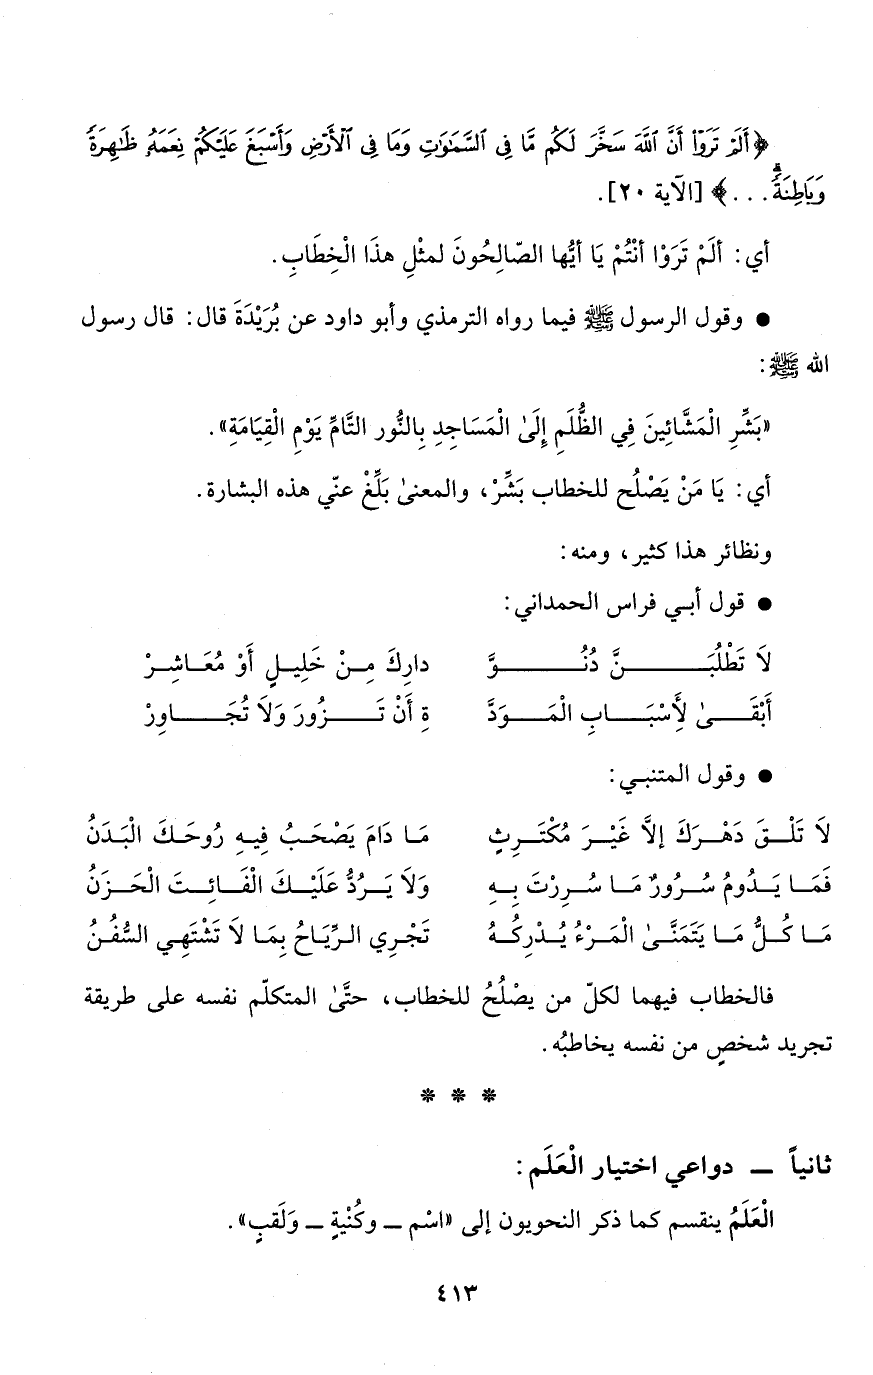 ﴿أَلَمْ تَرَوْا۟ أَنَّ ٱللَّهَ سَخَّرَ لَكُم مَّا فِى ٱلسَّمَٰوَٰتِ وَمَا فِى ٱلْأَرْضِ وَأَسْبَغَ عَلَيْكُمْ نِعَمَهُۥ ظَٰهِرَةً
وَبَاطِنَةً ۗ...﴾ [الآية ٢٠].
أي: ألَمْ تَرَوْا أنْتُمْ يَا أيُّها الصّالِحُونَ لمثْلِ هذَا الْخِطَابِ.
● وقول الرسول ﷺ فيما رواه الترمذي وأبو داود عن بُرَيْدَةَ قال: قال رسول
الله ﷺ:
«بَشِّرِ الْمَشَّائِينَ فِي الظُّلَمِ إِلَىٰ الْمَسَاجِدِ بِالنُّور التَّامِّ يَوْمِ الْقِيَامَةِ».
أي: يَا مَنْ يَصْلُح للخطاب بَشِّرْ، والمعنىٰ بَلِّغْ عنّي هذه البشارة.
ونظائر هذا كثير، ومنه:
● قول أبي فراس الحمداني:
لاَ تَطْلُبَنَّ دُنُوَّ دارِكَ مِنْ خَلِيلٍ أَوْ مُعَاشِرْ
أَبْقَىٰ لِأَسْبَابِ الْمَوَدَّ ةِ أَنْ تَزُورَ وَلاَ تُجَاوِرْ
● وقول المتنبي:
لاَ تَلْقَ دَهْرَكَ إلاَّ غَيْرَ مُكْتَرِثٍ مَا دَامَ يَصْحَبُ فِيهِ رُوحَكَ الْبَدَنُ
فَمَا يَدُومُ سُرُورٌ مَا سُرِرْتَ بِهِ وَلاَ يَرُدُّ عَلَيْكَ الْفَائِتَ الْحَزَنُ
مَا كُلُّ مَا يَتَمَنَّىٰ الْمَرْءُ يُدْرِكُهُ تَجْرِي الرِّيَاحُ بِمَا لاَ تَشْتَهِي السُّفُنُ
فالخطاب فيهما لكلّ من يصْلُحُ للخطاب، حتَّىٰ المتكلّم نفسه على طريقة
تجريد شخصٍ من نفسه يخاطبُه.
* * *
ثانياً – دواعي اختيار الْعَلَم:
الْعَلَمُ ينقسم كما ذكر النحويون إلى «اسْم – وكُنْيةٍ – وَلَقبٍ».
٤١٣